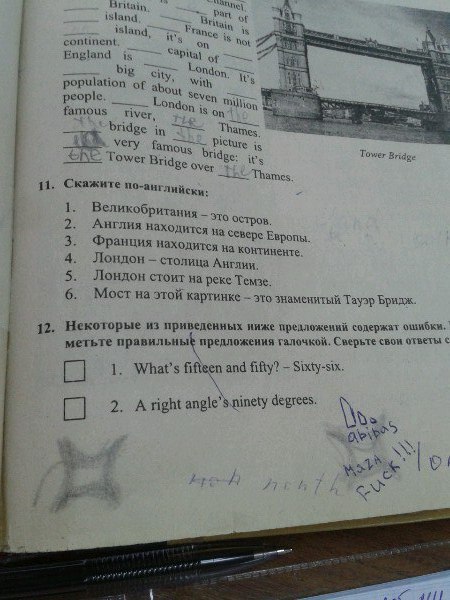 Channel.
Britain. ___ is ___ part of
___ island. ___ Britain is
___ island, ___ France is not
___ island, it's on ___
continent. ___ capital of ___
England is ___ London. It's
___ big city, with ___
population of about seven million
people. ___ London is on the
famous river, the Thames.
the bridge in the picture is
very famous bridge: it's
the Tower Bridge over the Thames.
Tower Bridge
11. Скажите по-английски:
1. Великобритания – это остров.
2. Англия находится на севере Европы.
3. Франция находится на континенте.
4. Лондон – столица Англии.
5. Лондон стоит на реке Темзе.
6. Мост на этой картинке – это знаменитый Тауэр Бридж.
12. Некоторые из приведенных ниже предложений содержат ошибки.
метьте правильные предложения галочкой. Сверьте свои ответы с
1. What's fifteen and fifty? – Sixty-six.
2. A right angle's ninety degrees.
abibas
Fuck!!!